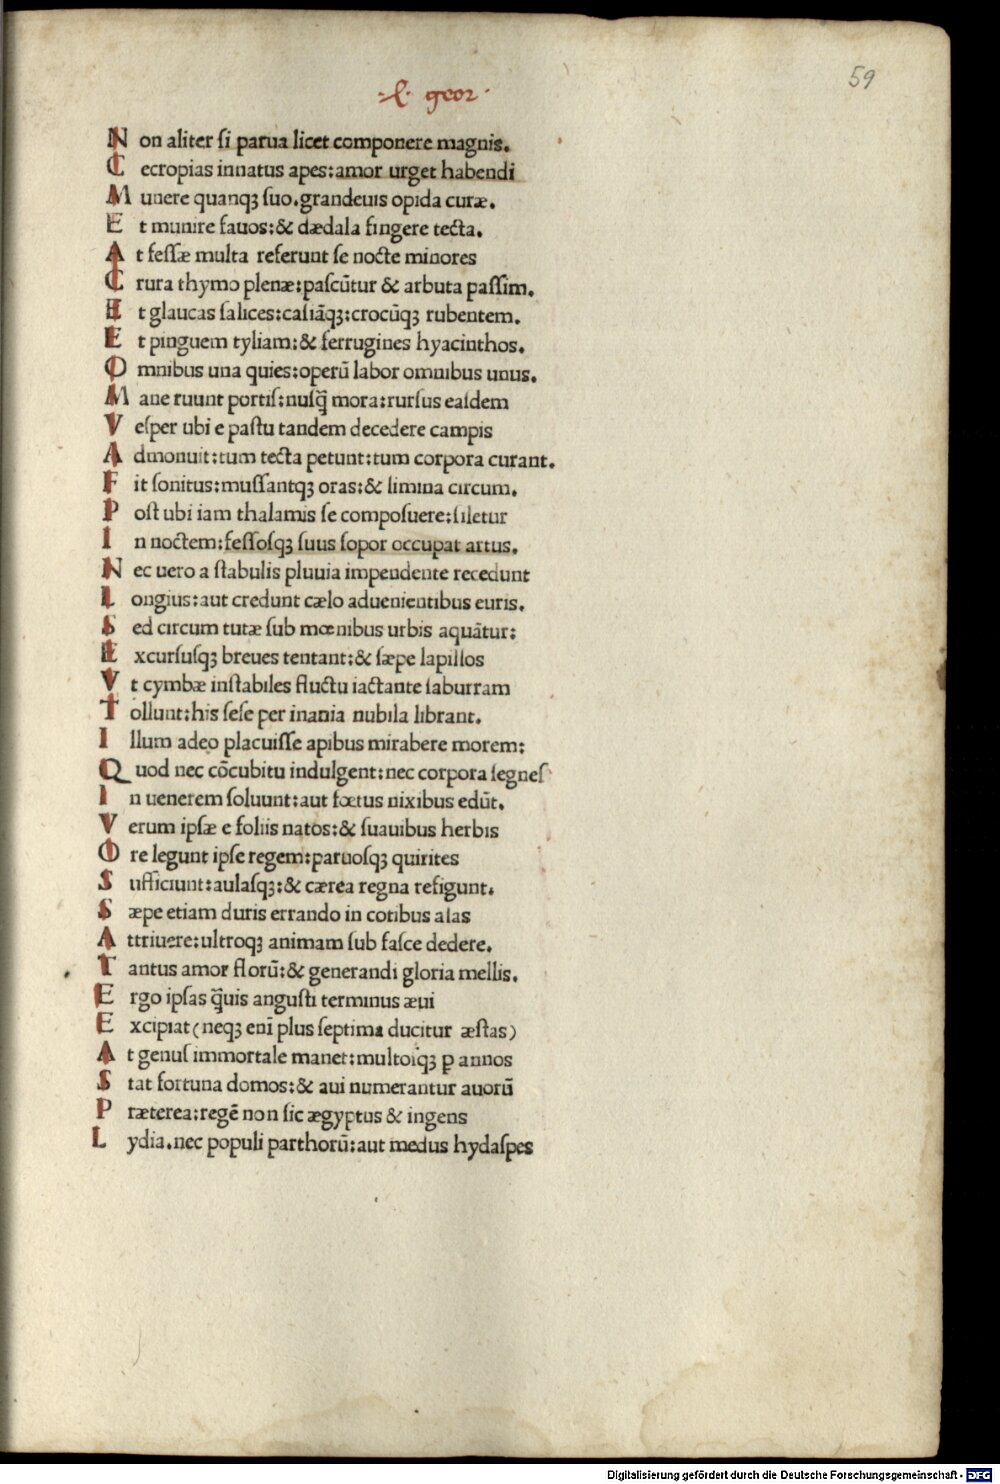 59
·L· geor·
Non aliter ſi parua licet componere magnis.
Cecropias innatus apes:amor urget habendi
Munere quanqꝫ ſuo.grandeuis opida curæ.
Et munire fauos:& dædala fingere tecta.
At feſſæ multa referunt ſe nocte minores
Crura thymo plenæ:paſcūtur & arbuta paſſim.
Et glaucas ſalices:caſiāqꝫ:crocūqꝫ rubentem.
Et pinguem tyliam:& ferrugines hyacinthos.
Omnibus una quies:operū labor omnibus unus.
Mane ruunt portiſ:nuſq̄ mora:rurſus eaſdem
Veſper ubi e paſtu tandem decedere campis
Admonuit:tum tecta petunt:tum corpora curant.
Fit ſonitus:muſſantqꝫ oras:& limina circum.
Poſt ubi iam thalamis ſe compoſuere:ſiletur
In noctem:feſſoſqꝫ ſuus ſopor occupat artus.
Nec uero a ſtabulis pluuia impendente recedunt
Longius:aut credunt cælo aduenientibus euris.
Sed circum tutæ ſub mœnibus urbis aquātur:
Excurſuſqꝫ breues tentant:& ſæpe lapillos
Vt cymbæ inſtabiles fluctu iactante ſaburram
Tollunt:his ſeſe per inania nubila librant.
Illum adeo placuiſſe apibus mirabere morem:
Quod nec cōcubitu indulgent:nec corpora ſegneſ
In uenerem ſoluunt:aut fœtus nixibus edūt.
Verum ipſæ e foliis natos:& ſuauibus herbis
Ore legunt ipſe regem:paruoſqꝫ quirites
Sufficiunt:aulaſqꝫ:& cærea regna refigunt.
Sæpe etiam duris errando in cotibus alas
Attriuere:ultroqꝫ animam ſub faſce dedere.
Tantus amor florū:& generandi gloria mellis.
Ergo ipſas q̄uis anguſti terminus æui
Excipiat(neqꝫ enī plus ſeptima ducitur æſtas)
At genuſ immortale manet:multoſqꝫ ꝑ annos
Stat fortuna domos:& aui numerantur auorū
Præterea:regē non ſic ægyptus & ingens
Lydia.nec populi parthorū:aut medus hydaſpes
Digitalisierung gefördert durch die Deutsche Forschungsgemeinschaft - DFG